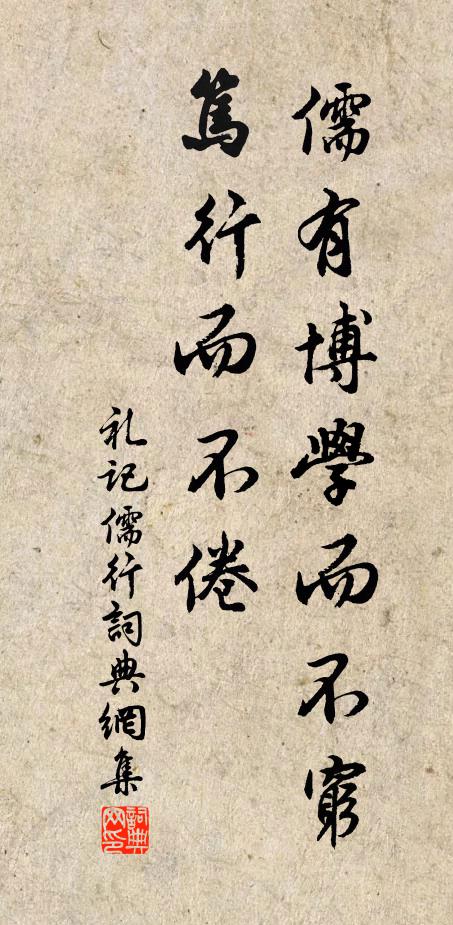 儒有博學而不窮
篤行而不倦
礼记儒行詞典網集
詞典网印